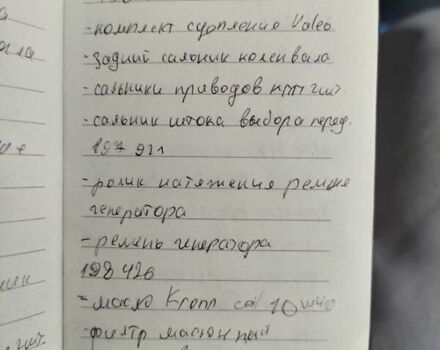 - комплект сцепление Valeo
- задний сальник коленвала
- сальники приводов кпп 2шт.
- сальник штока выбора перед.
197 921
- ролик натяжения ремня
генератора
- ремень генератора
198 426
- масло 10w40
- фильтр масленный